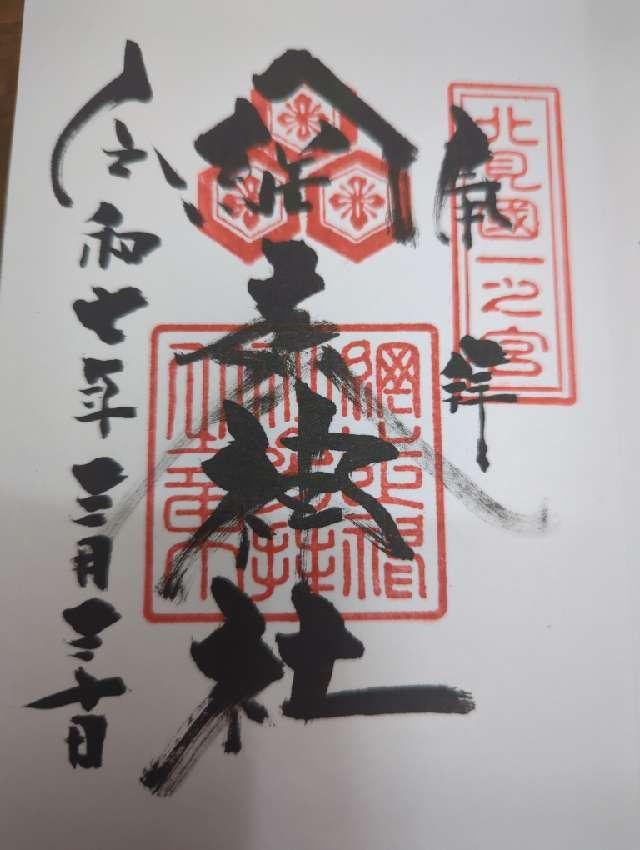 北見國一之宮
奉拝
網走神社
令和七年三月三十日